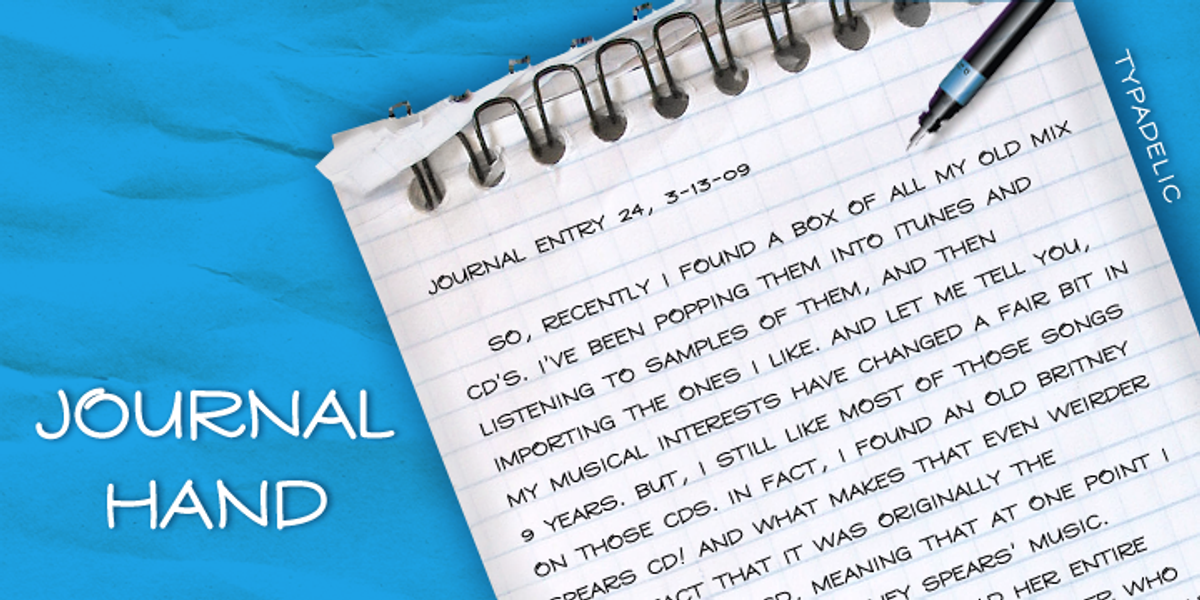 JOURNAL ENTRY 24, 3-13-09
SO, RECENTLY I FOUND A BOX OF ALL MY OLD MIX
CD'S. I'VE BEEN POPPING THEM INTO ITUNES AND
LISTENING TO SAMPLES OF THEM, AND THEN
IMPORTING THE ONES I LIKE. AND LET ME TELL YOU,
MY MUSICAL INTERESTS HAVE CHANGED A FAIR BIT IN
9 YEARS. BUT, I STILL LIKE MOST OF THOSE SONGS
ON THOSE CDS. IN FACT, I FOUND AN OLD BRITNEY
SPEARS CD! AND WHAT MAKES THAT EVEN WEIRDER
THAT IT WAS ORIGINALLY THE
MEANING THAT AT ONE POINT I
SPEARS' MUSIC.
HER ENTIRE
WHO
JOURNAL
HAND
TYPADELIC